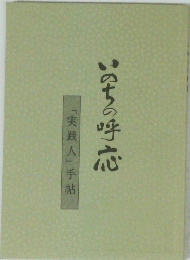 いのちの呼応
「実践人」手帖